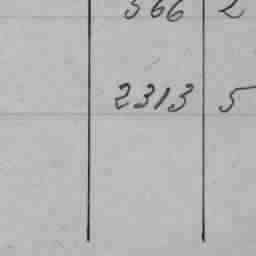 566 2
2313 5